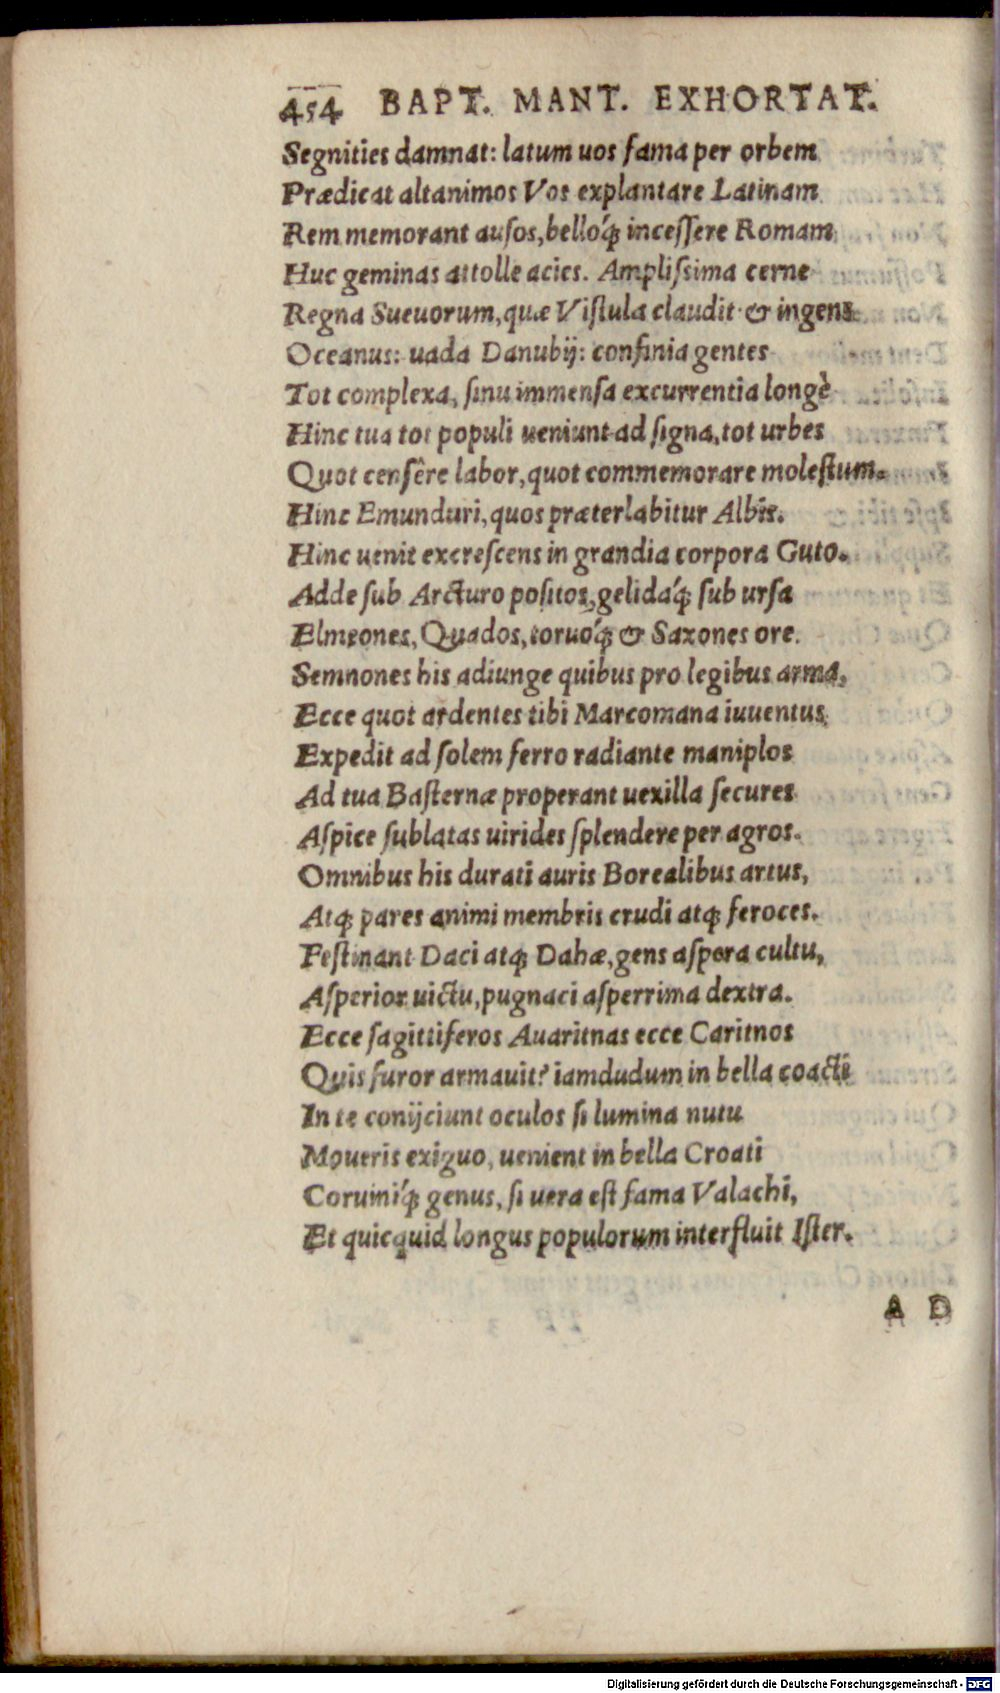 454 BAPT. MANT. EXHORTAT.
Segnities damnat: latum uos fama per orbem
Prædicat altanimos Vos explantare Latinam
Rem memorant ausos, belloq́; incessere Romam
Huc geminas attolle acies. Amplissima cerne
Regna Sueuorum, quæ Vistula claudit & ingens
Oceanus: uada Danubij: confinia gentes
Tot complexa, sinu immensa excurrentia longè
Hinc tua tot populi ueniunt ad signa, tot urbes
Quot censêre labor, quot commemorare molestum.
Hinc Emunduri, quos præterlabitur Albis.
Hinc uenit excrescens in grandia corpora Guto.
Adde sub Arcturo positos, gelidaq́; sub ursa
Elmeones, Quados, toruoq́; & Saxones ore.
Semnones his adiunge quibus pro legibus arma,
Ecce quot ardentes tibi Marcomana iuuentus,
Expedit ad solem ferro radiante maniplos
Ad tua Basternæ properant uexilla secures
Aspice sublatas uirides splendere per agros.
Omnibus his durati auris Borealibus artus,
Atq; pares animi membris crudi atq; feroces.
Festinant Daci atq; Dahæ, gens aspera cultu,
Asperior uictu, pugnaci asperrima dextra.
Ecce sagittiferos Auaritnas ecce Caritnos
Quis furor armauit? iamdudum in bella coacti
In te conijciunt oculos si lumina nutu
Moueris exiguo, uenient in bella Croati
Coruiniq́; genus, si uera est fama Valachi,
Et quicquid longus populorum interfluit Ister.
A D
Digitalisierung gefördert durch die Deutsche Forschungsgemeinschaft - DFG